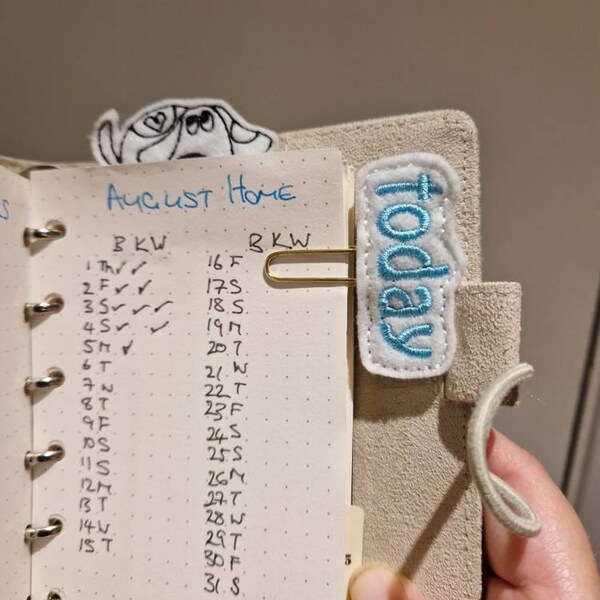 AUGUST HOME
B K W
1 Th ✓ ✓
2 F ✓ ✓
3 S ✓ ✓ ✓
4 S ✓ ✓
5 M ✓
6 T
7 W
8 T
9 F
10 S
11 S
12 M
13 T
14 W
15 T
B K W
16 F
17 S
18 S
19 M
20 T
21 W
22 T
23 F
24 S
25 S
26 M
27 T
28 W
29 T
30 F
31 S
today
S
5